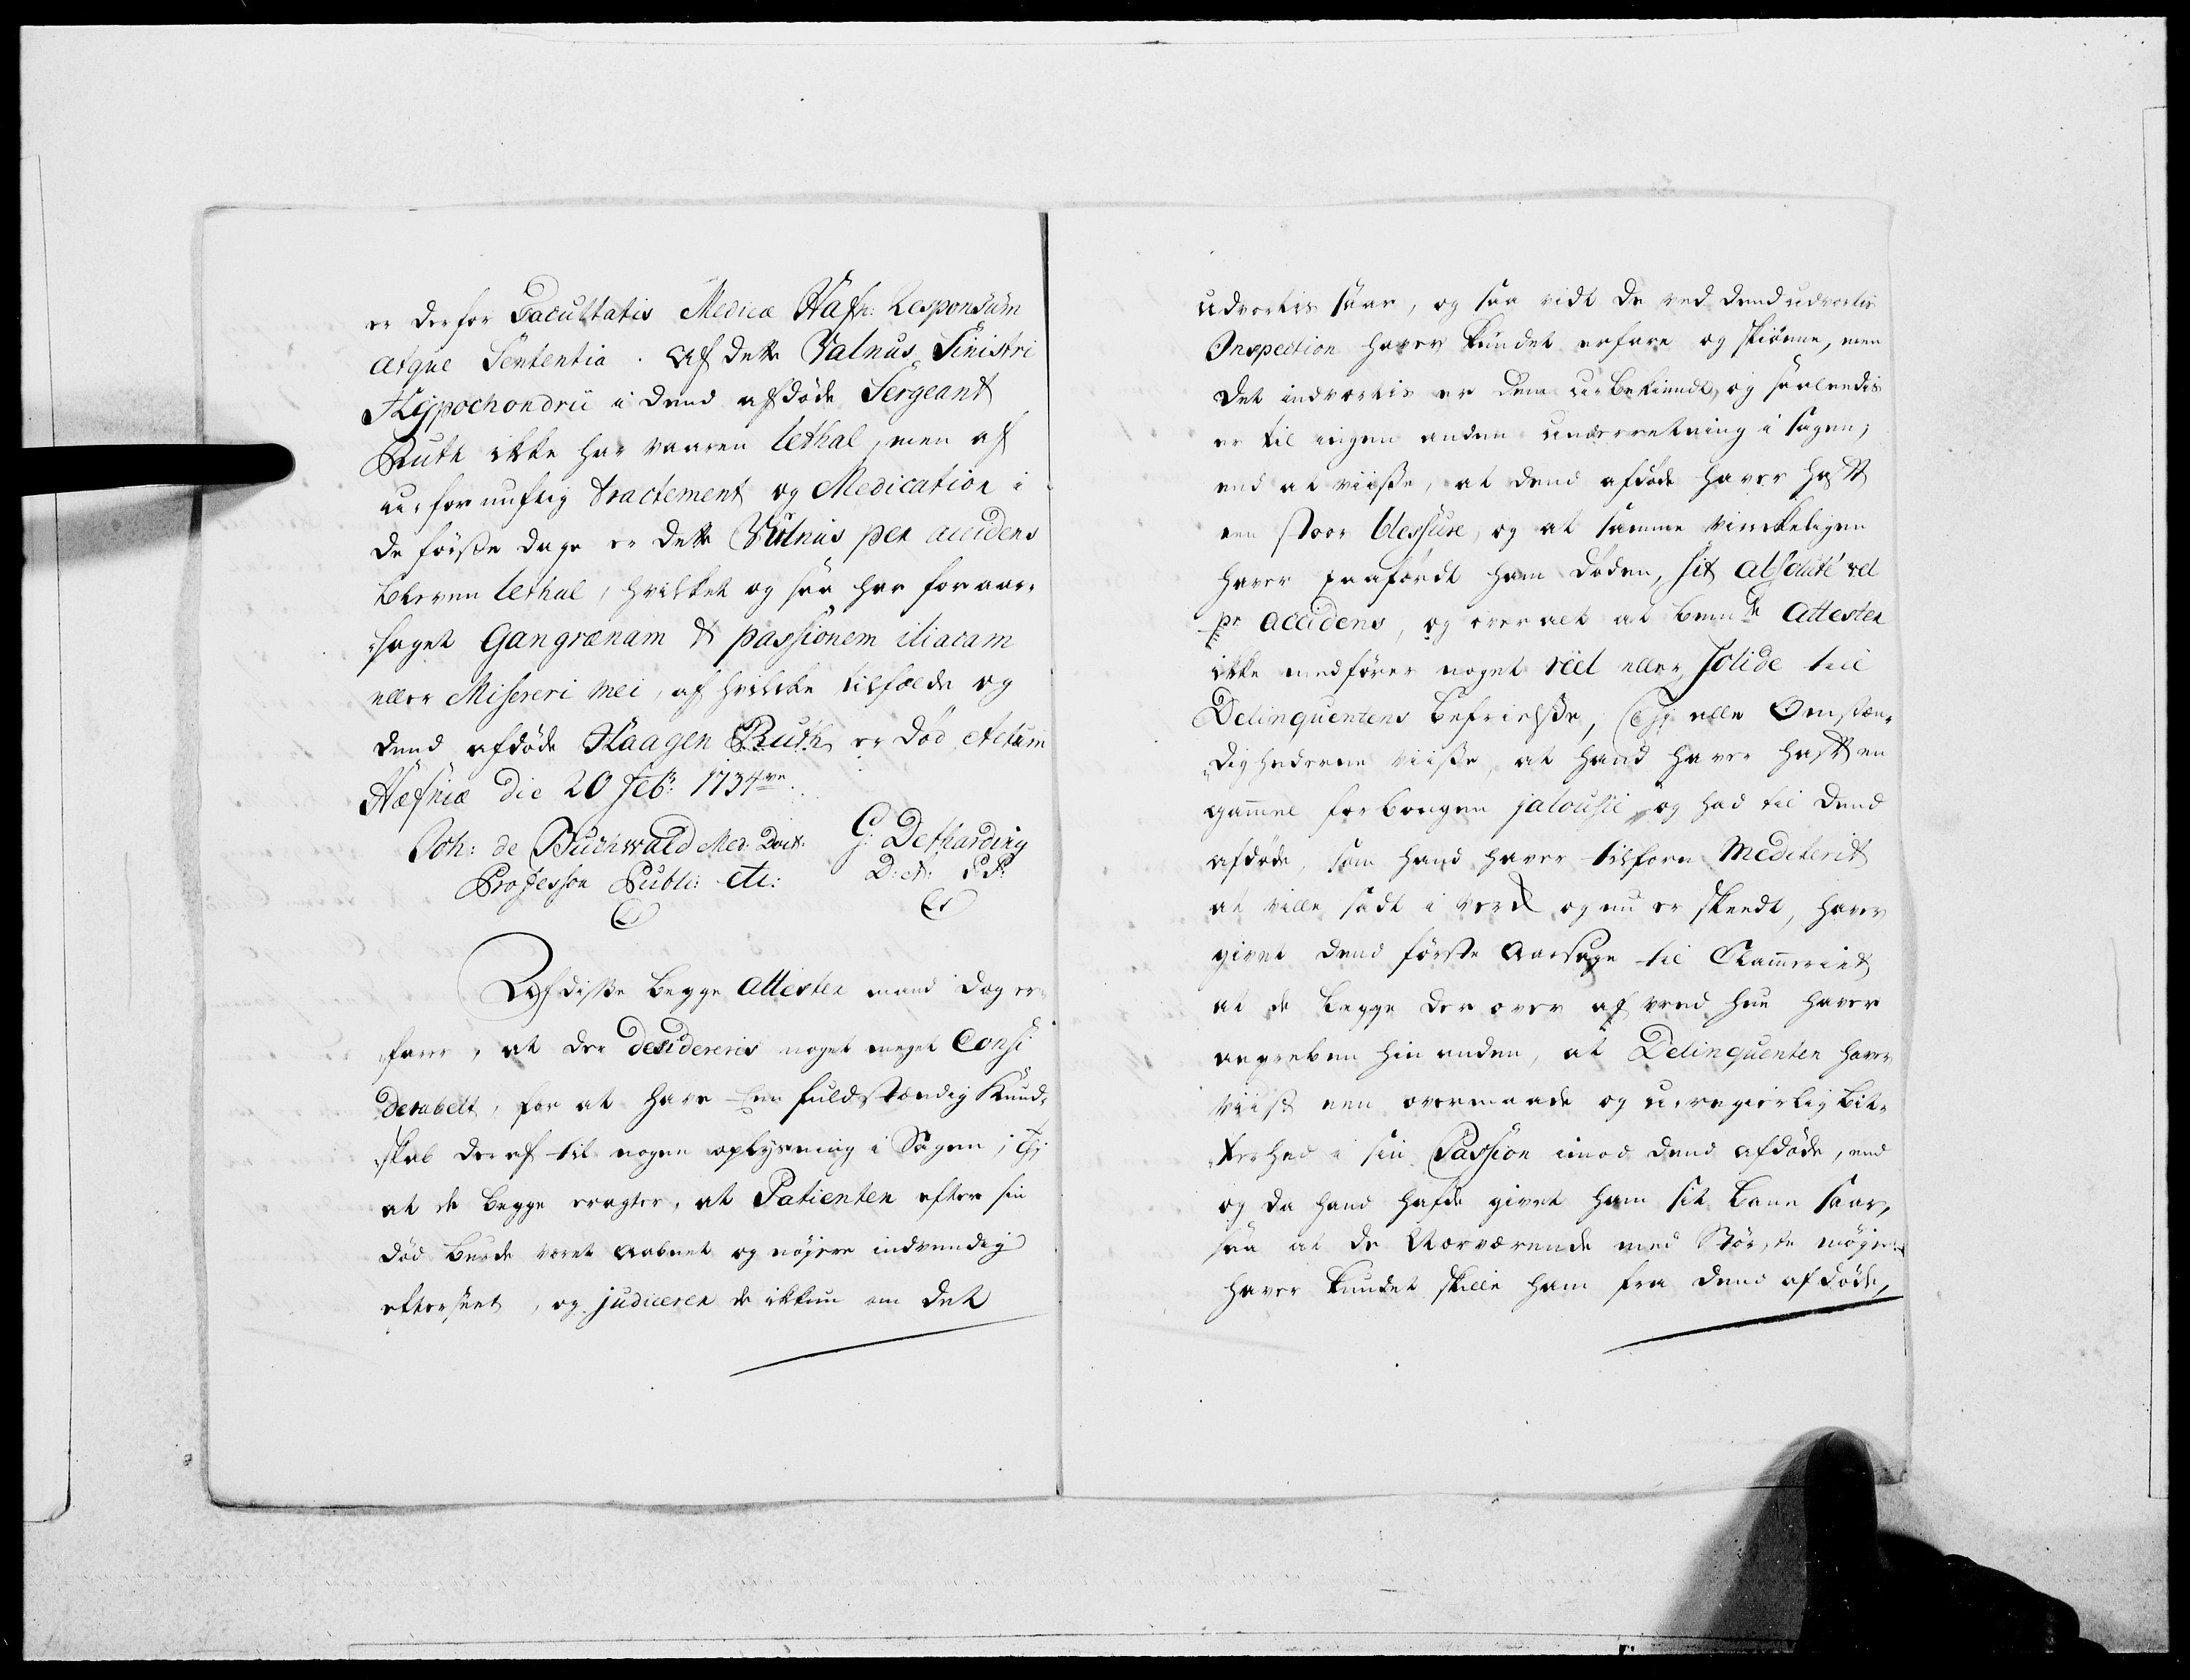 er derfor Facultatis Medicæ Hafn: Responsum
atque Sententia. At dette Valnus Sinistri
Hypochondrii i dend afdøde Sergeant
Ruth ikke har vaaren lethal, men af
ufornuftig Tractement og Medication i
de første dage er dette Vulnus per accidens
bleven lethal, hvilket og saa har foraar-
saget Gangrænam & passionem iliacam
eller Misereri mei, af hvilcke tilfælde og
dend afdøde Haagen Ruth er død. Actum
Hafniæ die 20 Feb: 1734
Joh: de Buchwald Med. Doct. G: Detharding
Professor Publ: etc: D: A: P:P:
Af disse begge Attester mand dog er-
farer, at der desidereris noget meget Consi
derabelt, for at have een fuldstændig Kund-
skab deraf til nogen oplysning i Sagen; thj
at de begge eragter, at Patienten efter sin
død burde været aabnet og nøjere indvendig
efterseet, og judicerer de ikkun om det
udvortis saar, og saa vidt de ved dend udvortis
Inspection haver kundet erfare og skiønne, men
det indvortis er dem ubekiendt, og saaledis
er til ingen anden underretning i sagen,
end at viisse, at dend afdøde haver haft
een stoor blessure, og at samme virckeligen
haver paaførdt ham døden, sit absoluté vel
pr accidens, og over alt at bemte Attester
ikke medfører noget réel eller solide til
Delinquentens befrielsse, thj alle Omstæn-
dighederne viisse, at hand haver haft en
gammel forborgen jalousie og had til dend
afdøde, som hand haver tilforn Mediterit
at ville sadt i verck og nu er skeedt, haver
givet dend første Aarsage til Klammeriet
at de begge derover af vred hue haver
angreben hin anden, at Delinquenten haver
viist een overmaade og u-regierlig bit-
terhed i sin Passion imod dend afdøde, end
og da hand hafde givet ham sit bane saar,
saa at de Nærværende med Største møye
haver kundet skille ham fra dend afdøde,